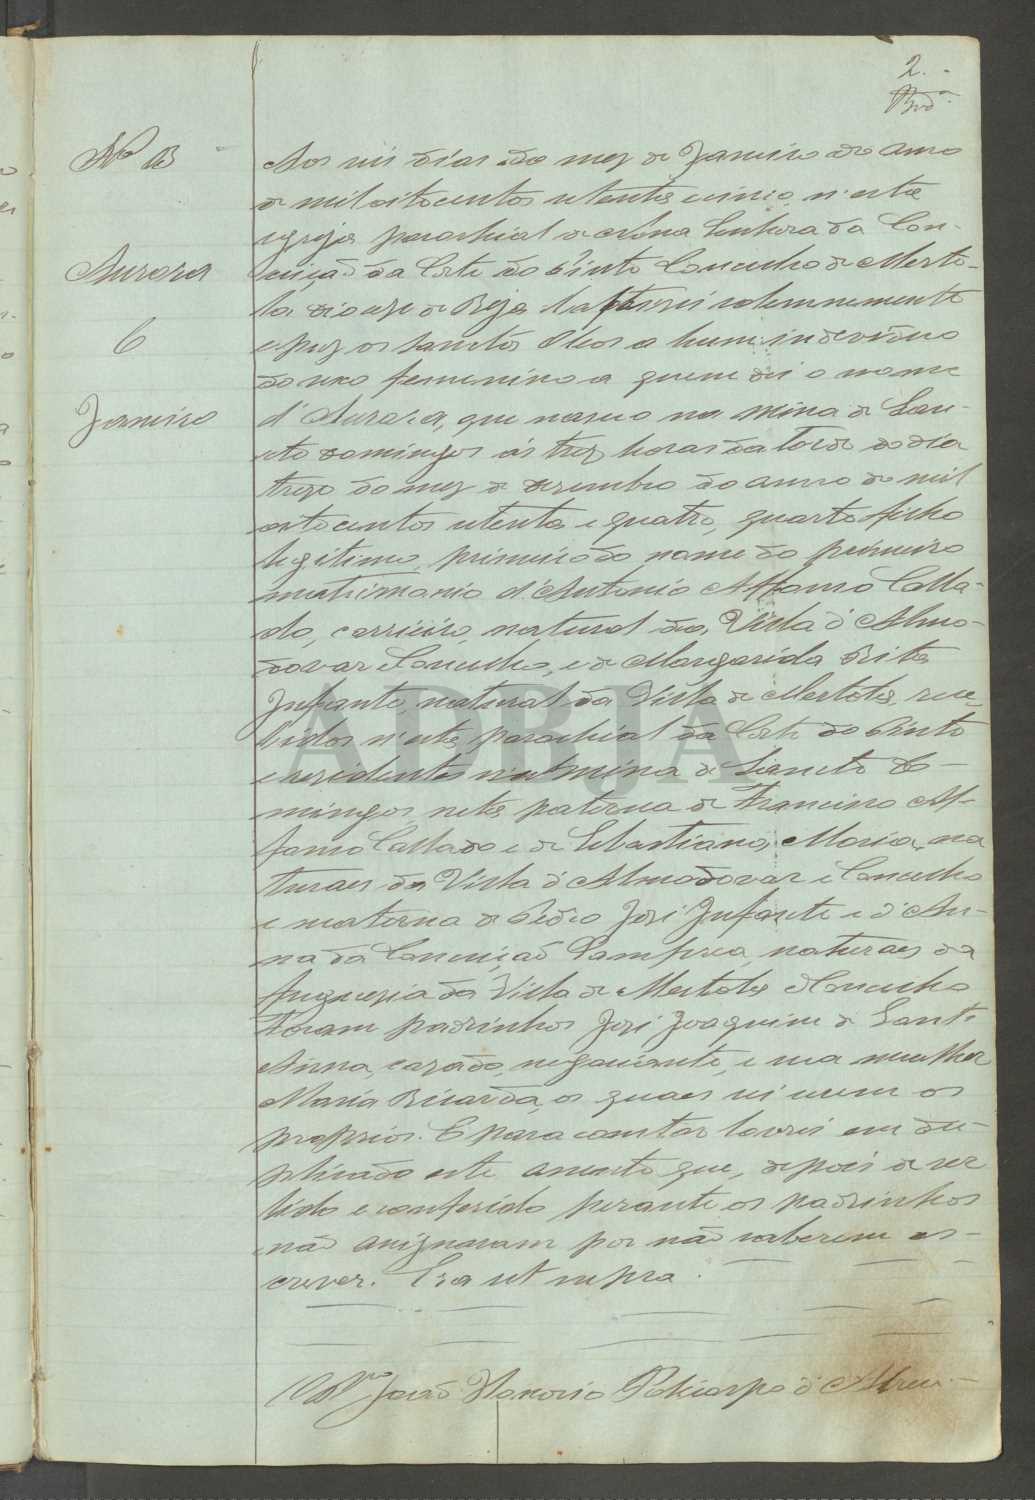 2.
Nº 3
Aurora
6
Janeiro
Aos seis dias do mez de Janeiro do anno
de mil oitocentos setenta e cinco, n'esta
egreja parochial de Nossa Senhora da Con-
ceição da Corte do Pinto Concelho de Merto-
la diocese de Beja baptisei solemnemente
e puz os sanctos Oleos a hum individuo
do sexo femenino a quem dei o nome
d'Aurora, que nasceu na Mina de San-
cto Domingos ás trez horas da tarde do dia
treze do mez de dezembro do anno de mil
oitocentos setenta e quatro, quarto filho
legitimo, primeiro do nome do primeiro
matrimonio d'Antonio Affonso Calla-
do, carreiro, natural da Villa d'Almo-
dovar e Concelho, e de Margarida Rita
Infante, natural da Villa de Mertola, rece-
bidos n'esta parochial da Corte do Pinto
e residentes n'esta Mina de Sancto Do-
mingos, neta paterna de Francisco Af-
fonso Callado e de Sebastiana Maria, na
turaes da Villa d'Almodovar e Concelho
e materna de Pedro José Infante e d'An-
na da Conceição Lampreia, naturaes da
freguesia da Villa de Mertola e Concelho
Foram padrinhos José Joaquim de Sant'
Anna, cazado, negociante, e sua mulher
Maria Ricarda, os quaes sei serem os
proprios. E para constar lavrei em du-
plicado este assento que, depois de ser
lido e conferido perante os padrinhos
não assignaram por não saberem es-
crever. Era ut supra.
João Honorio Policarpo d'Abreu
ADBJA